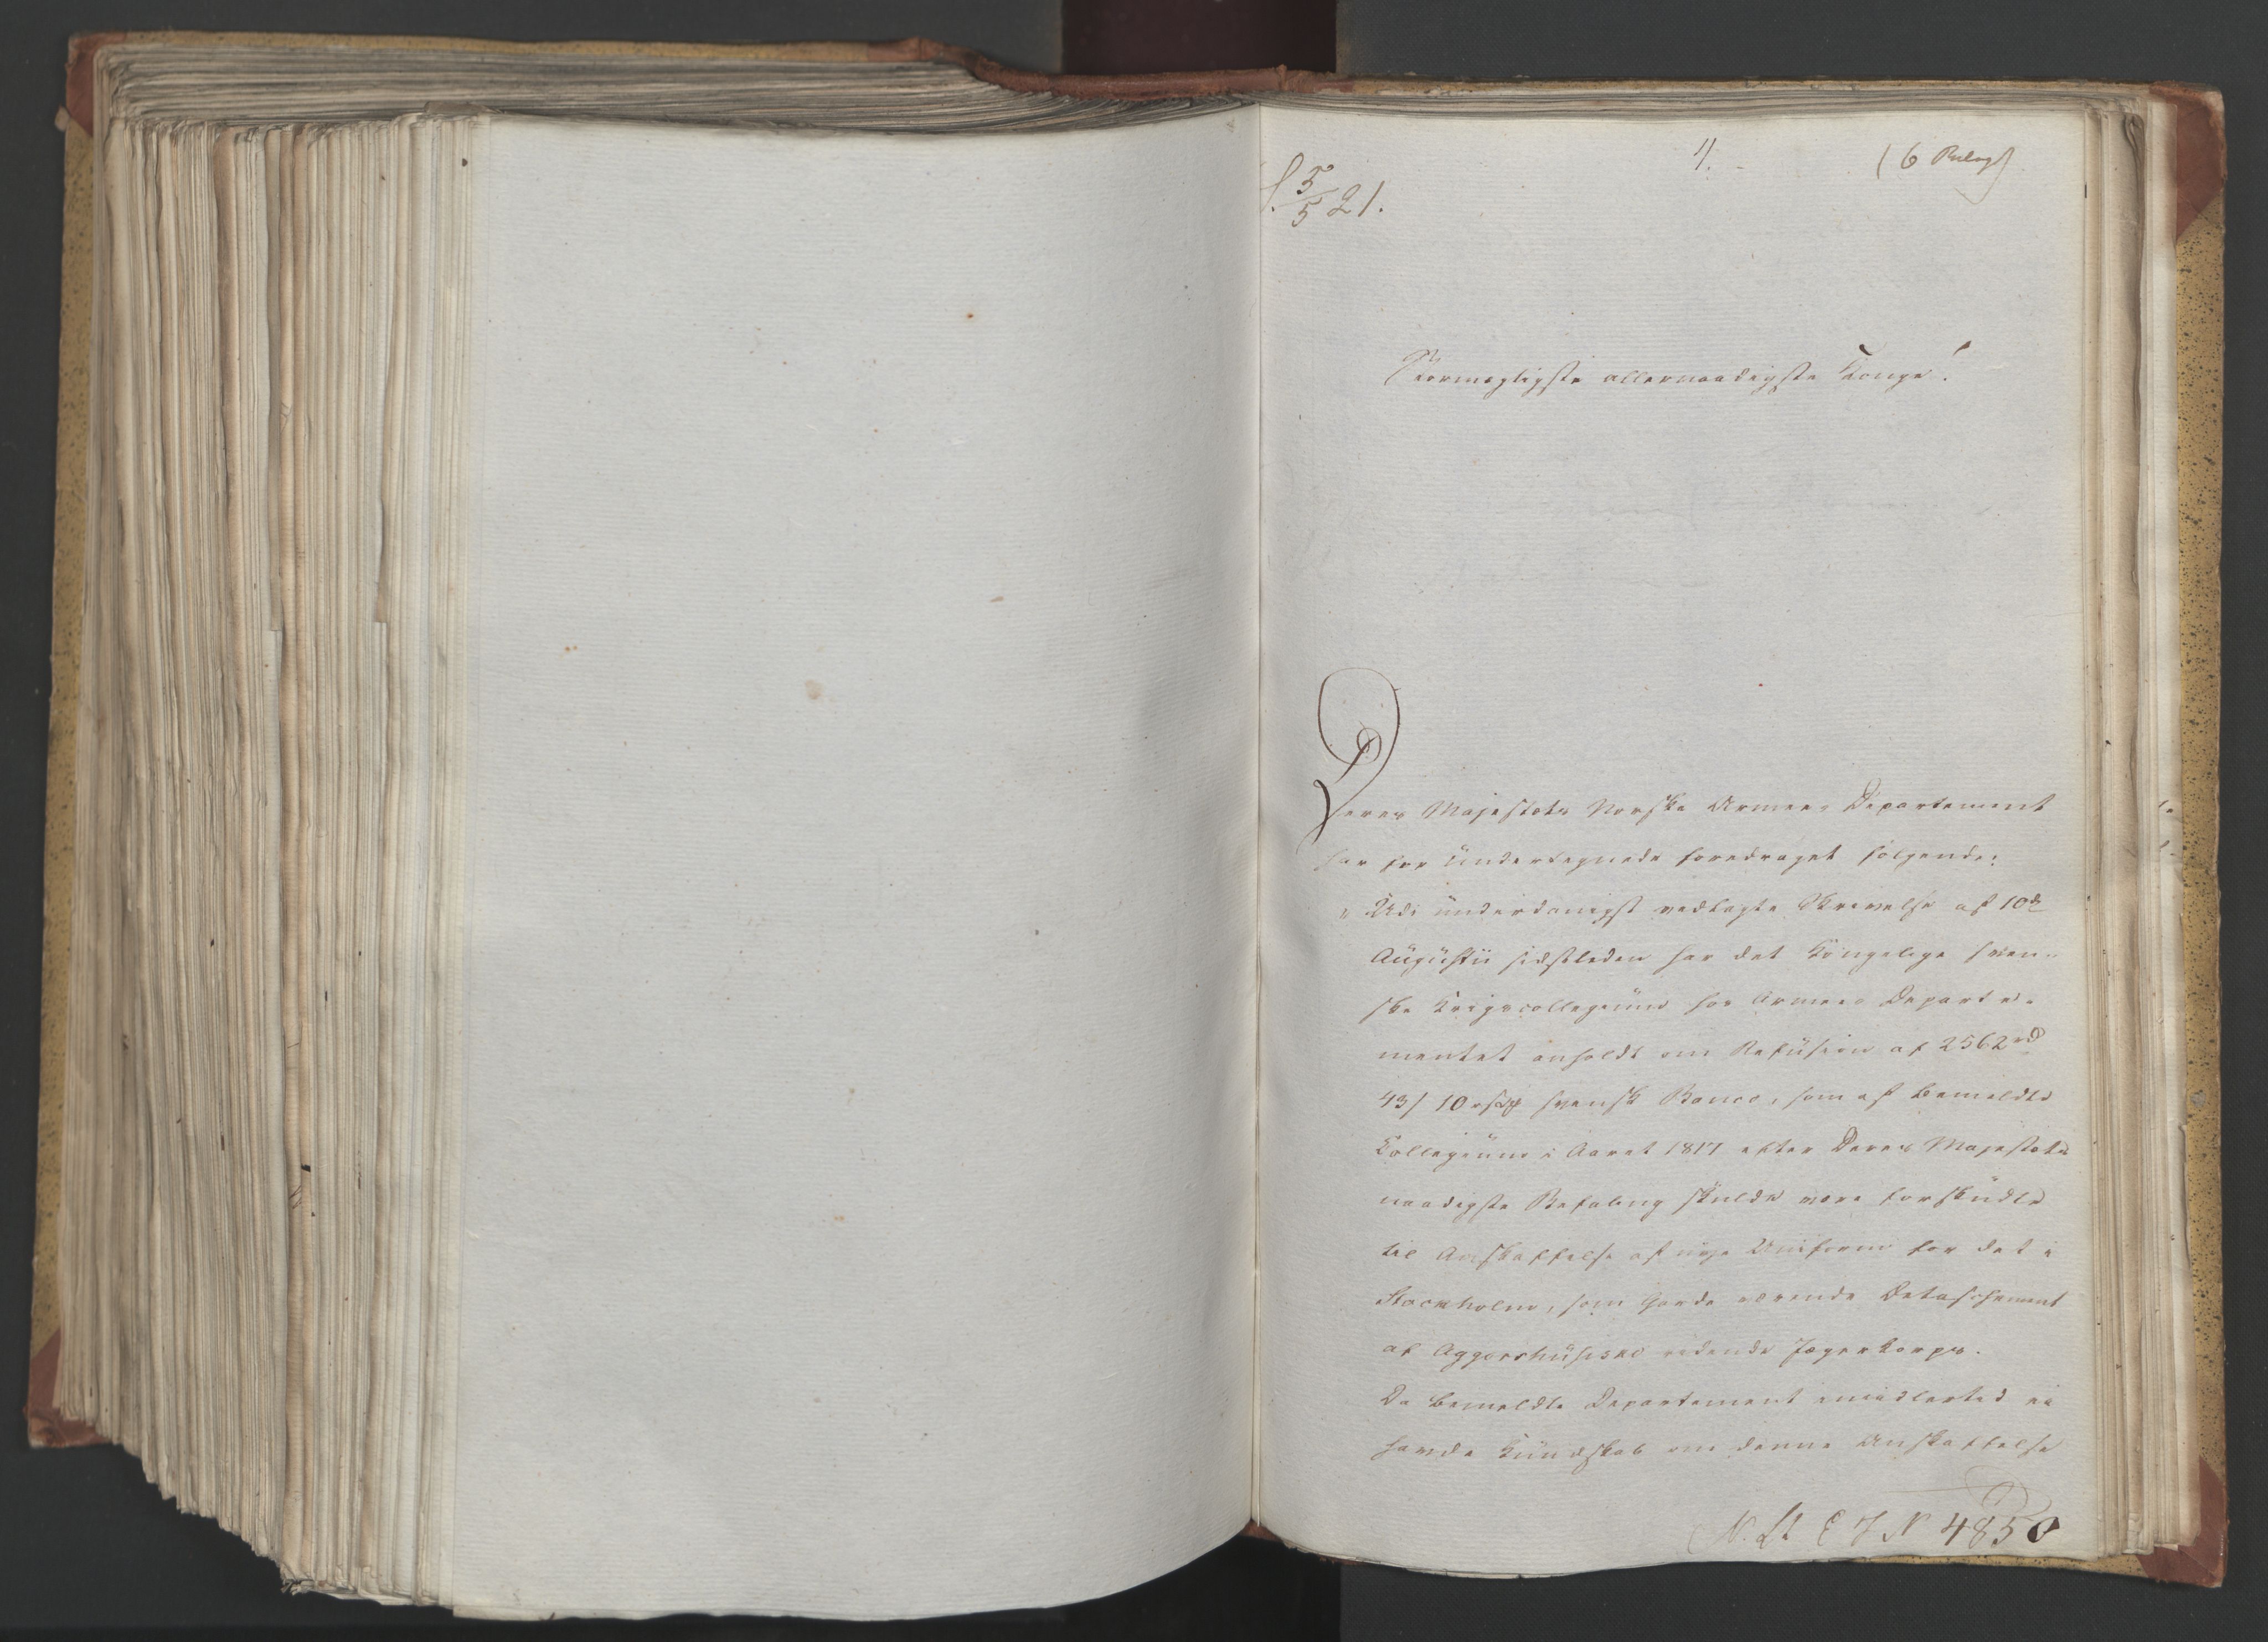 4. (6 Bilag)
S. 5/5 21.
Stormægtigste allernaadigste Konge!
Deres Majestæts Norske Armee-Departement
har for Undertegnede foredraget følgende:
"Udi underdanigst vedlagte Skrivelse af 10de
Augustii sidstleden har det Kongelige Sven-
ske Krigscollegium hos Armee-Departe-
mentet anholdt om Refusion af 2562 rd
43 s 10 rst svensk Banco, som af bemeldte
Collegium i Aaret 1817 efter Deres Majestæts
naadigste Befaling skulde være forskudte
til Anskaffelse af nye Uniform for det i
Stockholm, som Garde værende Detaschement
af Aggershusiske ridende Jægerkorps.
Da bemeldte Departement imidlertid ei
havde Kundskab om denne Anskaffelse
N. St E J N 4850